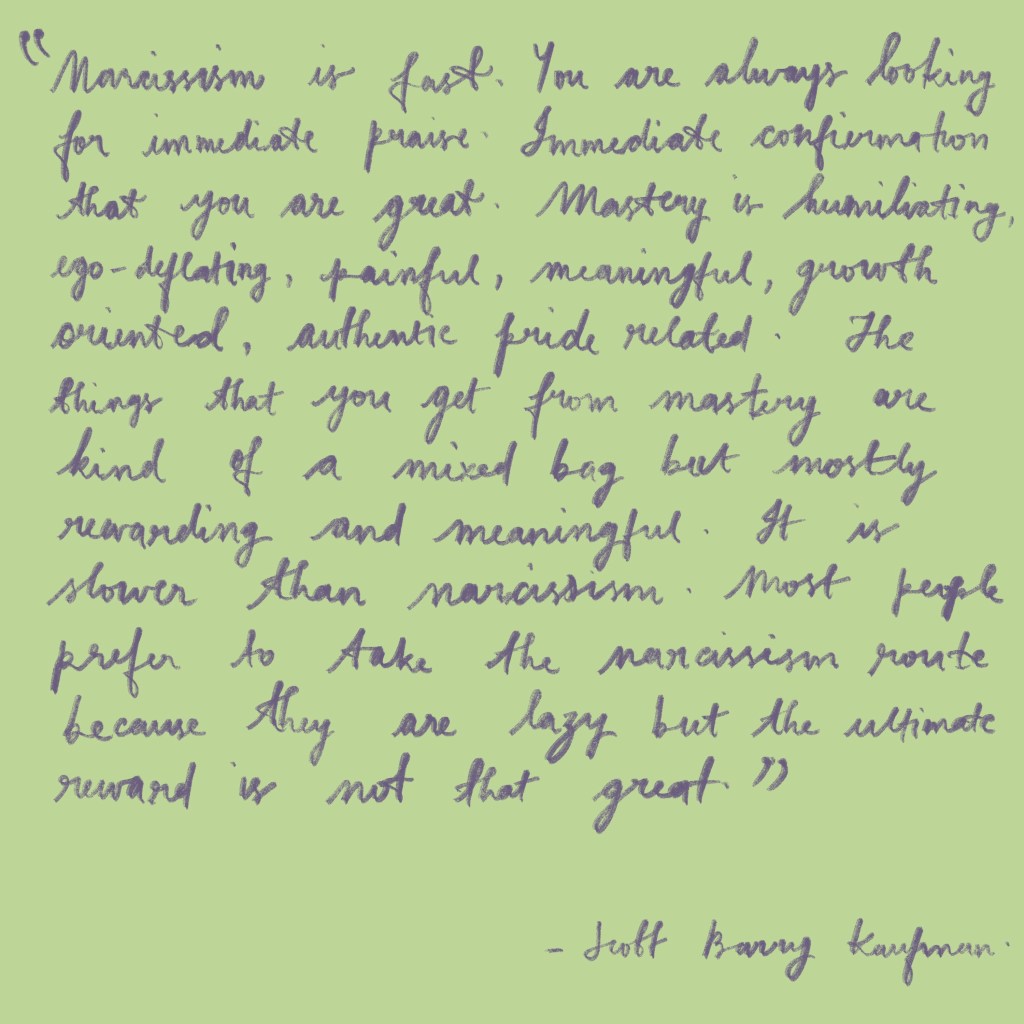 "Narcissism is fast. You are always looking
for immediate praise. Immediate confiermation
that you are great. Mastery is humiliating,
ego-deflating, painful, meaningful, growth
oriented, authentic pride related. The
things that you get from mastery are
kind of a mixed bag but mostly
rewarding and meaningful. It is
slower than narcissism. Most people
prefer to take the narcissism route
because they are lazy but the ultimate
reward is not that great."
- Scott Barry Kaufman.